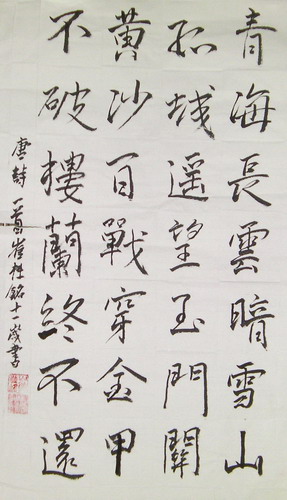 青海長雲暗雪山
孤城遥望玉門關
黃沙百戰穿金甲
不破樓蘭終不還
唐詩一首崔桂銘十一歲書